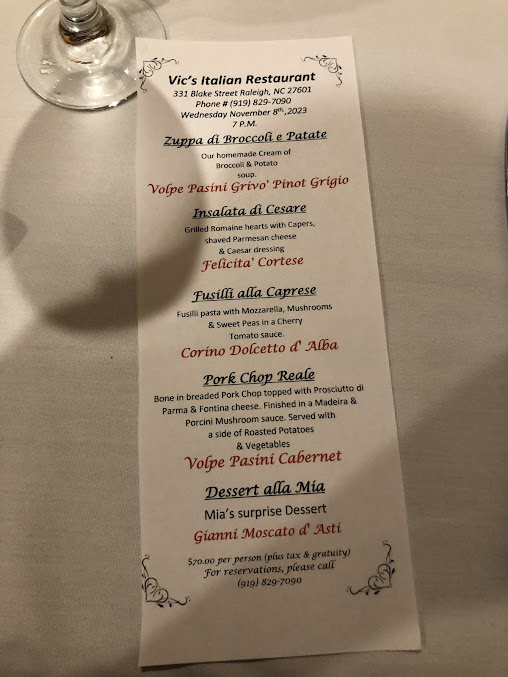 Vic's Italian Restaurant
331 Blake Street Raleigh, NC 27601
Phone # (919) 829-7090
Wednesday November 8th,2023
7 P.M.
Zuppa di Broccoli e Patate
Our homemade Cream of
Broccoli & Potato
soup.
Volpe Pasini Grivo' Pinot Grigio
Insalata di Cesare
Grilled Romaine hearts with Capers,
shaved Parmesan cheese
& Caesar dressing
Felicita' Cortese
Fusilli alla Caprese
Fusilli pasta with Mozzarella, Mushrooms
& Sweet Peas in a Cherry
Tomato sauce.
Corino Dolcetto d' Alba
Pork Chop Reale
Bone in breaded Pork Chop topped with Prosciutto di
Parma & Fontina cheese. Finished in a Madeira &
Porcini Mushroom sauce. Served with
a side of Roasted Potatoes
& Vegetables
Volpe Pasini Cabernet
Dessert alla Mia
Mia's surprise Dessert
Gianni Moscato d' Asti
$70.00 per person (plus tax & gratuity)
For reservations, please call
(919) 829-7090